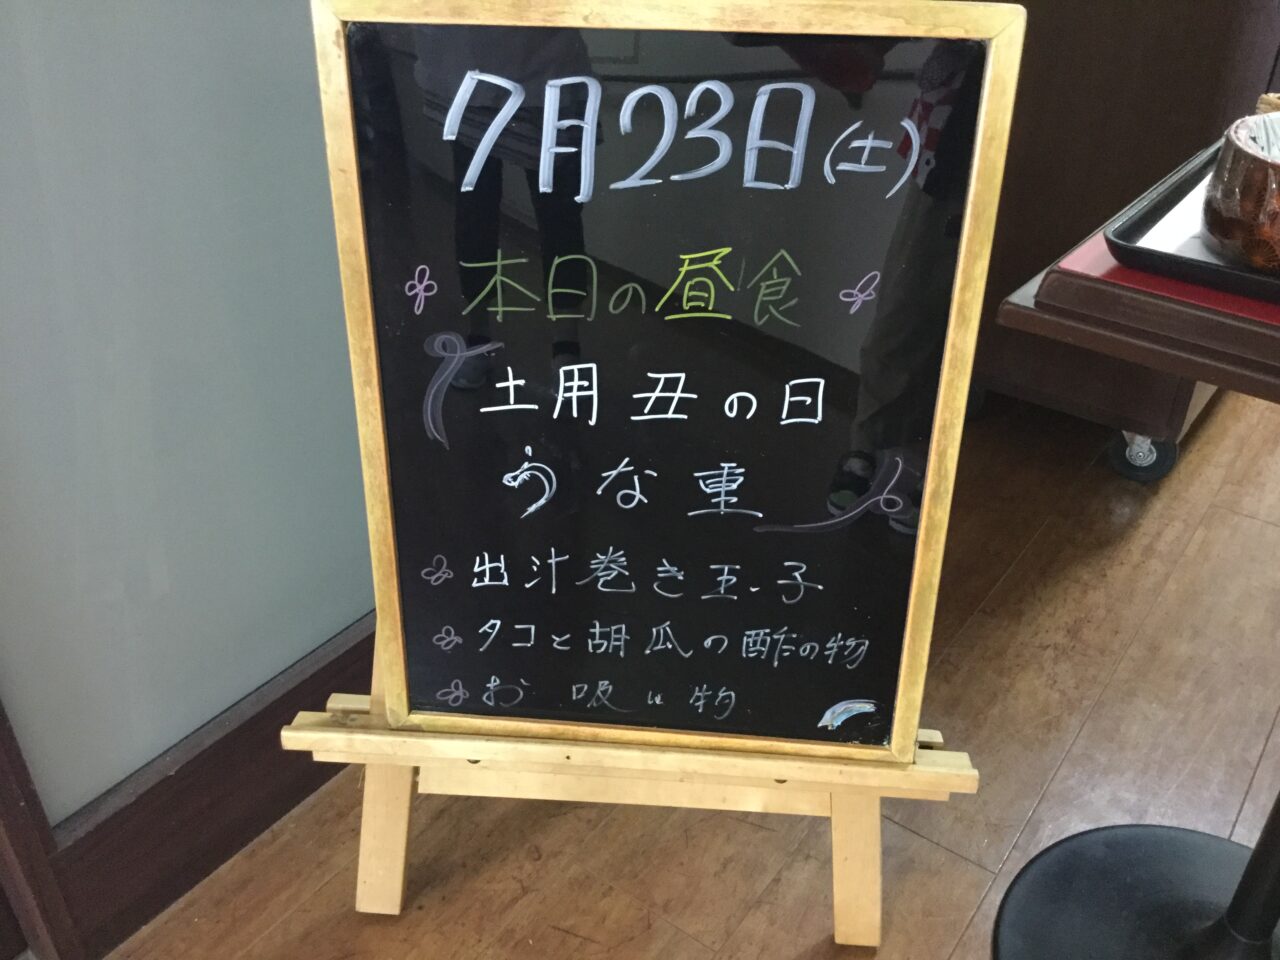 7月23日(土)
本日の昼食
土用丑の日
うな重
出汁巻き玉子
タコと胡瓜の酢の物
お吸い物